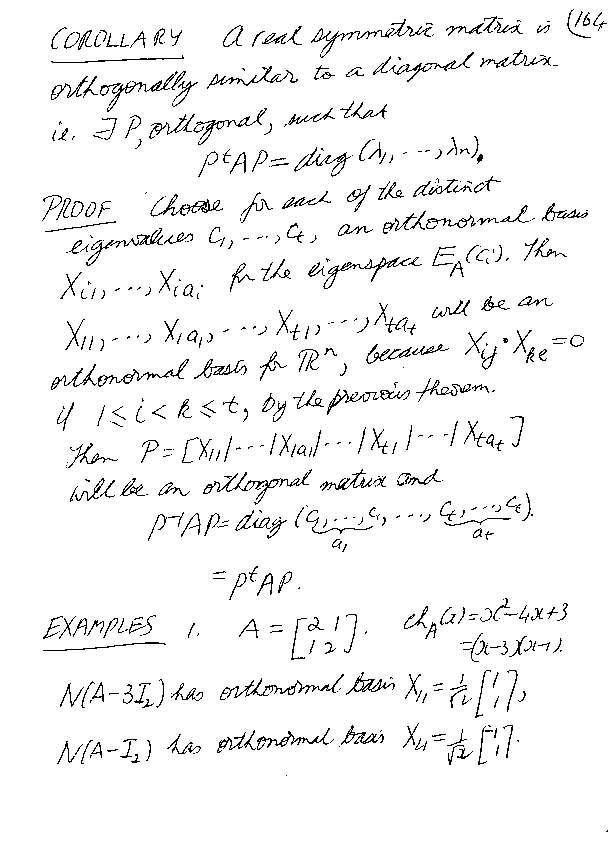 COROLLARY A real symmetric matrix is (164
orthogonally similar to a diagonal matrix
ie. ∃ P, orthogonal, such that
PᵗAP = diag (λ₁, ---, λn).
PROOF Choose for each of the distinct
eigenvalues C₁, ---, Cₜ, an orthonormal basis
Xᵢ₁, ---, Xᵢₐᵢ for the eigenspace E_A(Cᵢ). Then
X₁₁, ---, X₁ₐ₁, ---, Xₜ₁, ---, Xₜₐₜ will be an
orthonormal basis for ℝⁿ, because Xᵢⱼ · Xₖₑ = 0
if 1 ≤ i < k ≤ t, by the previous theorem.
Then P = [X₁₁| --- |X₁ₐ₁| --- |Xₜ₁| --- |Xₜₐₜ]
will be an orthogonal matrix and
P⁻¹AP = diag (C₁, ---, C₁, ---, Cₜ, ---, Cₜ).
a₁ aₜ
= PᵗAP.
EXAMPLES 1. A = [2 1; 1 2]. ch_A(x) = x² - 4x + 3
= (x-3)(x-1).
N(A-3I₂) has orthonormal basis X₁₁ = 1/√2 [1; 1],
N(A-I₂) has orthonormal basis X₂₁ = 1/√2 [-1; 1].